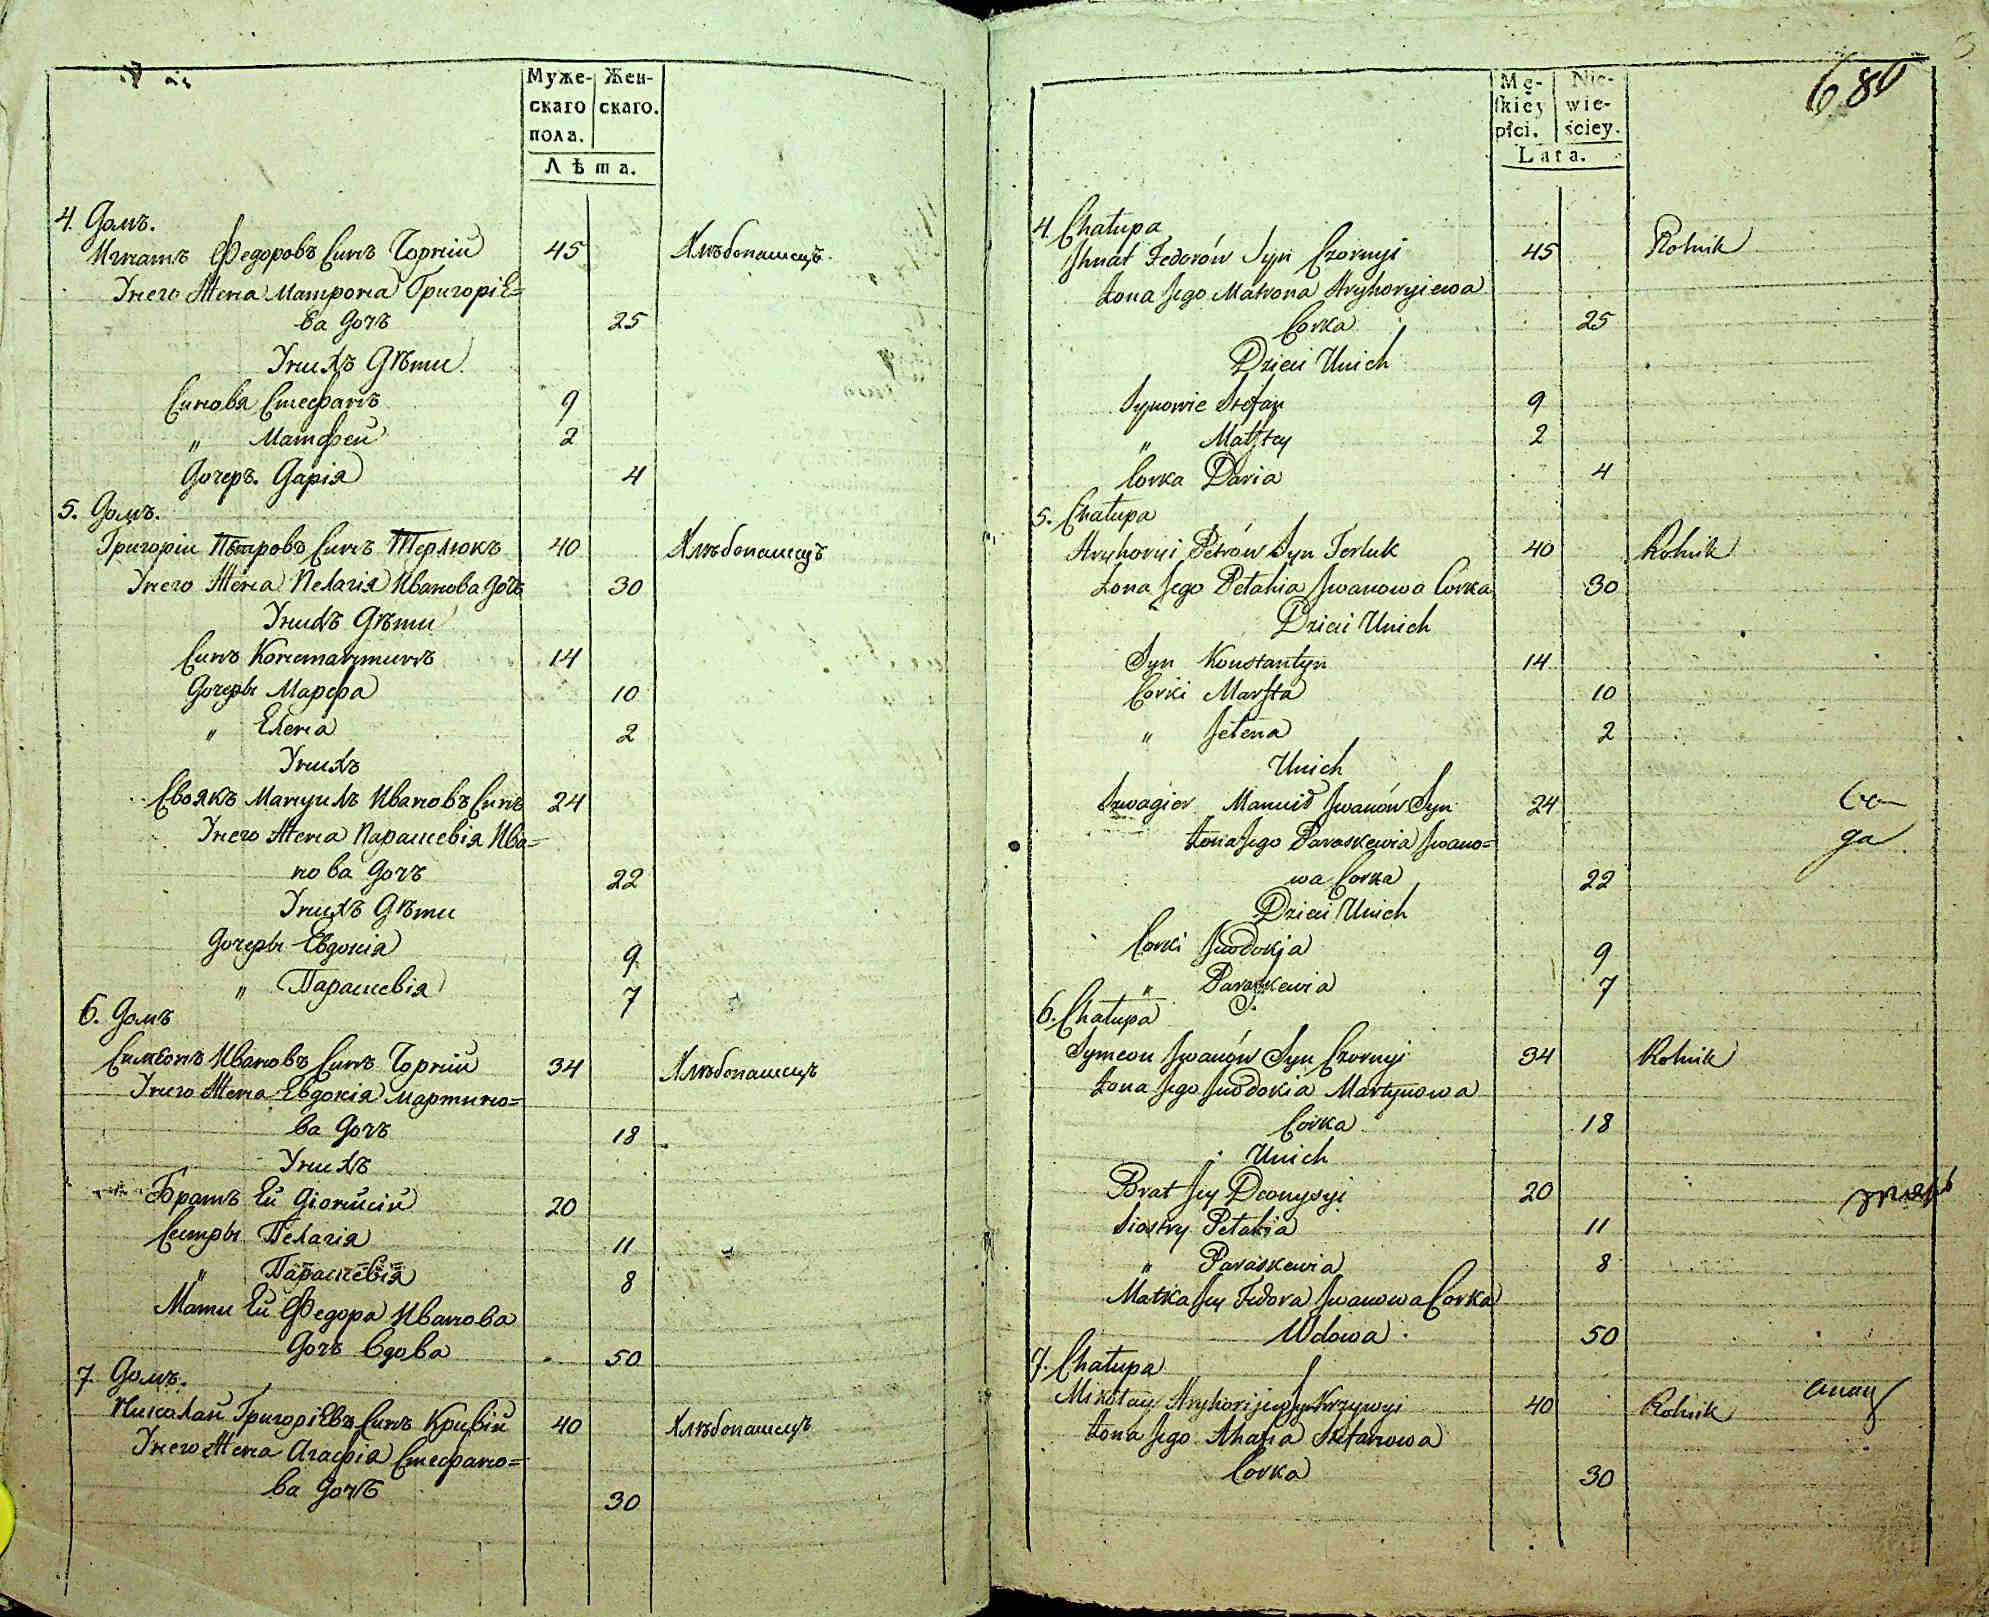 Муже-
скаго
пола.
Жен-
скаго.
Лѣта.
4. Домъ.
Игнатъ Федоровъ Синъ Чорній 45 Хлѣбопашецъ.
Унего Жена Матрона Григоріе=
ва дочъ 25
Унихъ Дѣти
Синовя Стефанъ 9
" Матфей 2
Дочеръ. Дарія 4
5. Домъ.
Григорій Петровъ Синъ Терлюкъ 40 Хлѣбопашецъ
Унего Жена Пелагія Иванова дочъ 30
Унихъ Дѣти
Синъ Константинъ 14
Дочеры Марфа 10
" Елена 2
Унихъ
Своякъ Мануилъ Ивановъ Синъ 24
Унего Жена Парашевія Ива=
нова дочъ 22
Унихъ Дѣти
Дочеры Евдокія 9
" Парашевія 7
6. Домъ
Симеонъ Ивановъ Синъ Чорній 34 Хлѣбопашецъ
Унего Жена Евдокія Мартино=
ва дочъ 18
Унихъ
Братъ Ей Діонисій 20
Сестры Пелагія 11
" Парашевія 8
Мати Ей Федора Иванова
дочъ вдова 50
7. Домъ.
Николай Григоріевъ Синъ Кривій 40 Хлѣбопашецъ
Унего Жена Агафія Стефано=
ва дочъ 30
680
Mę-
skiey
płci.
Nie-
wie-
ściey.
Lata.
4. Chałupa
Ihnat Fedorów Syn Czornyi 45 Rolnik
Żona Jego Matrona Hryhoryiewa
Corka 25
Dzieci Unich
Synowie Stefan 9
" Matftey 2
Corka Daria 4
5. Chałupa
Hryhoryi Petrów Syn Terluk 40 Rolnik
Żona Jego Pełahia Jwanowa Corka 30
Dzieci Unich
Syn Konstantyn 14
Corki Marfta 10
" Jełena 2
Unich
Szwagier Manuił Jwanów Syn 24
Żona Jego Paraskewia Jwano=
wa Corka 22
Dzieci Unich
Corki Jwdokja 9
" Paraskewia 7
6. Chałupa
Symeon Jwanów Syn Czornyi 34 Rolnik
Żona Jego Jwdokia Martynowa
Corka 18
Unich
Brat Jey Deonysyi 20
Siostry Pełahia 11
" Paraskewia 8
Matka Jey Fedora Jwanowa Corka
Wdowa 50
7. Chałupa
Mikołay Hryhorijew Syn Krzywyi 40 Rolnik
Żona Jego Ahafia Stefanowa
Corka 30